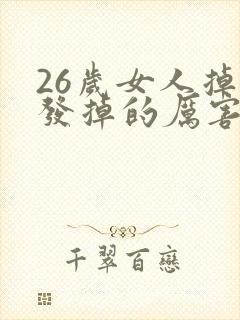 26歲女人掉
發掉的厲害
千翠百戀